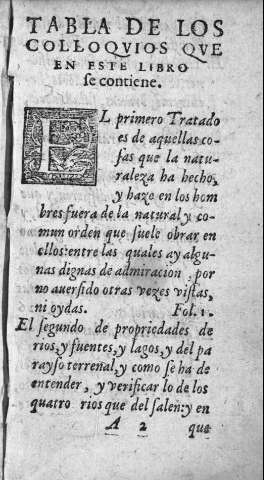 TABLA DE LOS
COLLOQVIOS QVE
EN ESTE LIBRO
se contiene.
EL primero Tratado
es de aquellas co-
sas que la natu-
raleza ha hecho,
y haze en los hom
bres fuera de la natural y co-
mun orden que suele obrar en
ellos: entre las quales ay algu-
nas dignas de admiracion, por
no auer sido otras vezes vistas,
ni oydas. Fol. 1.
El segundo de propriedades de
rios, y fuentes, y lagos, y del pa
rayso terrenal, y como se ha de
entender, y verificar lo de los
quatro rios que del salen: y en
A 2 que